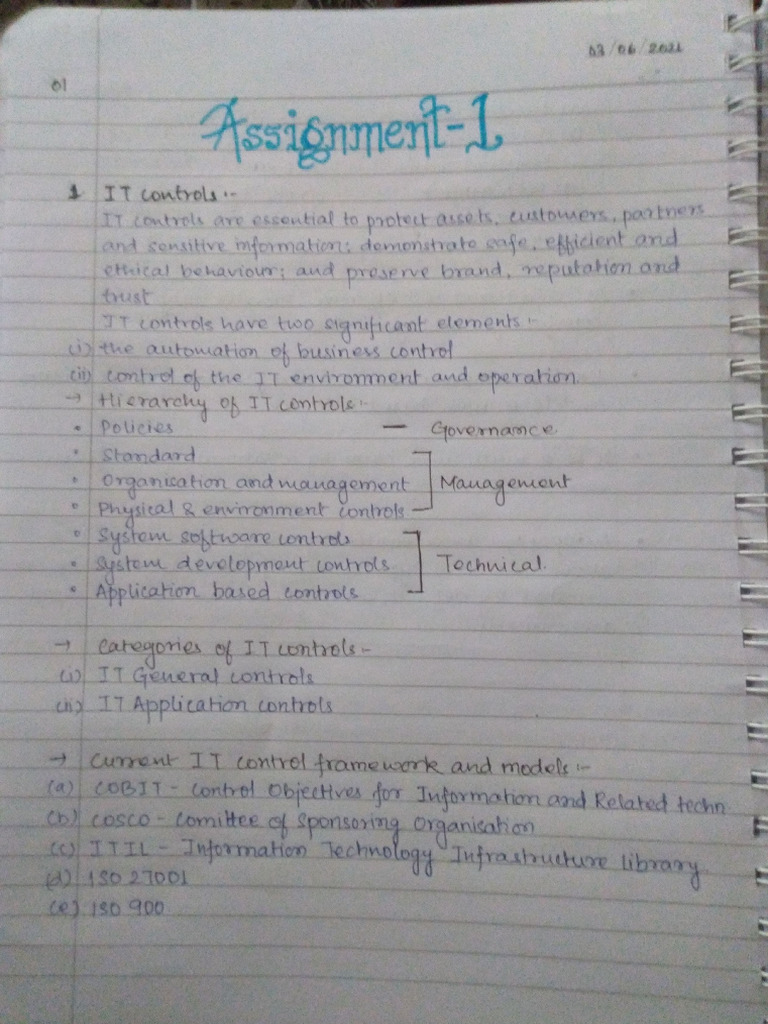 03/06/2021
01
Assignment-1
1 IT controls :-
IT controls are essential to protect assets, customers, partners
and sensitive information; demonstrate safe, efficient and
ethical behaviour; and preserve brand, reputation and
trust
IT controls have two significant elements :-
(i) the automation of business control
(ii) control of the IT environment and operation.
→ Hierarchy of IT controls :-
• Policies — Governance
• Standard
• Organisation and management Management
• Physical & environment controls
• System software controls
• System development controls Technical.
• Application based controls
→ Categories of IT controls :-
(i) IT General controls
(ii) IT Application controls
→ Current IT control framework and models :-
(a) COBIT - Control Objectives for Information and Related techn
(b) COSCO - Comittee of Sponsoring Organisation
(c) ITIL - Information Technology Infrastructure Library
(d) ISO 27001
(e) ISO 900